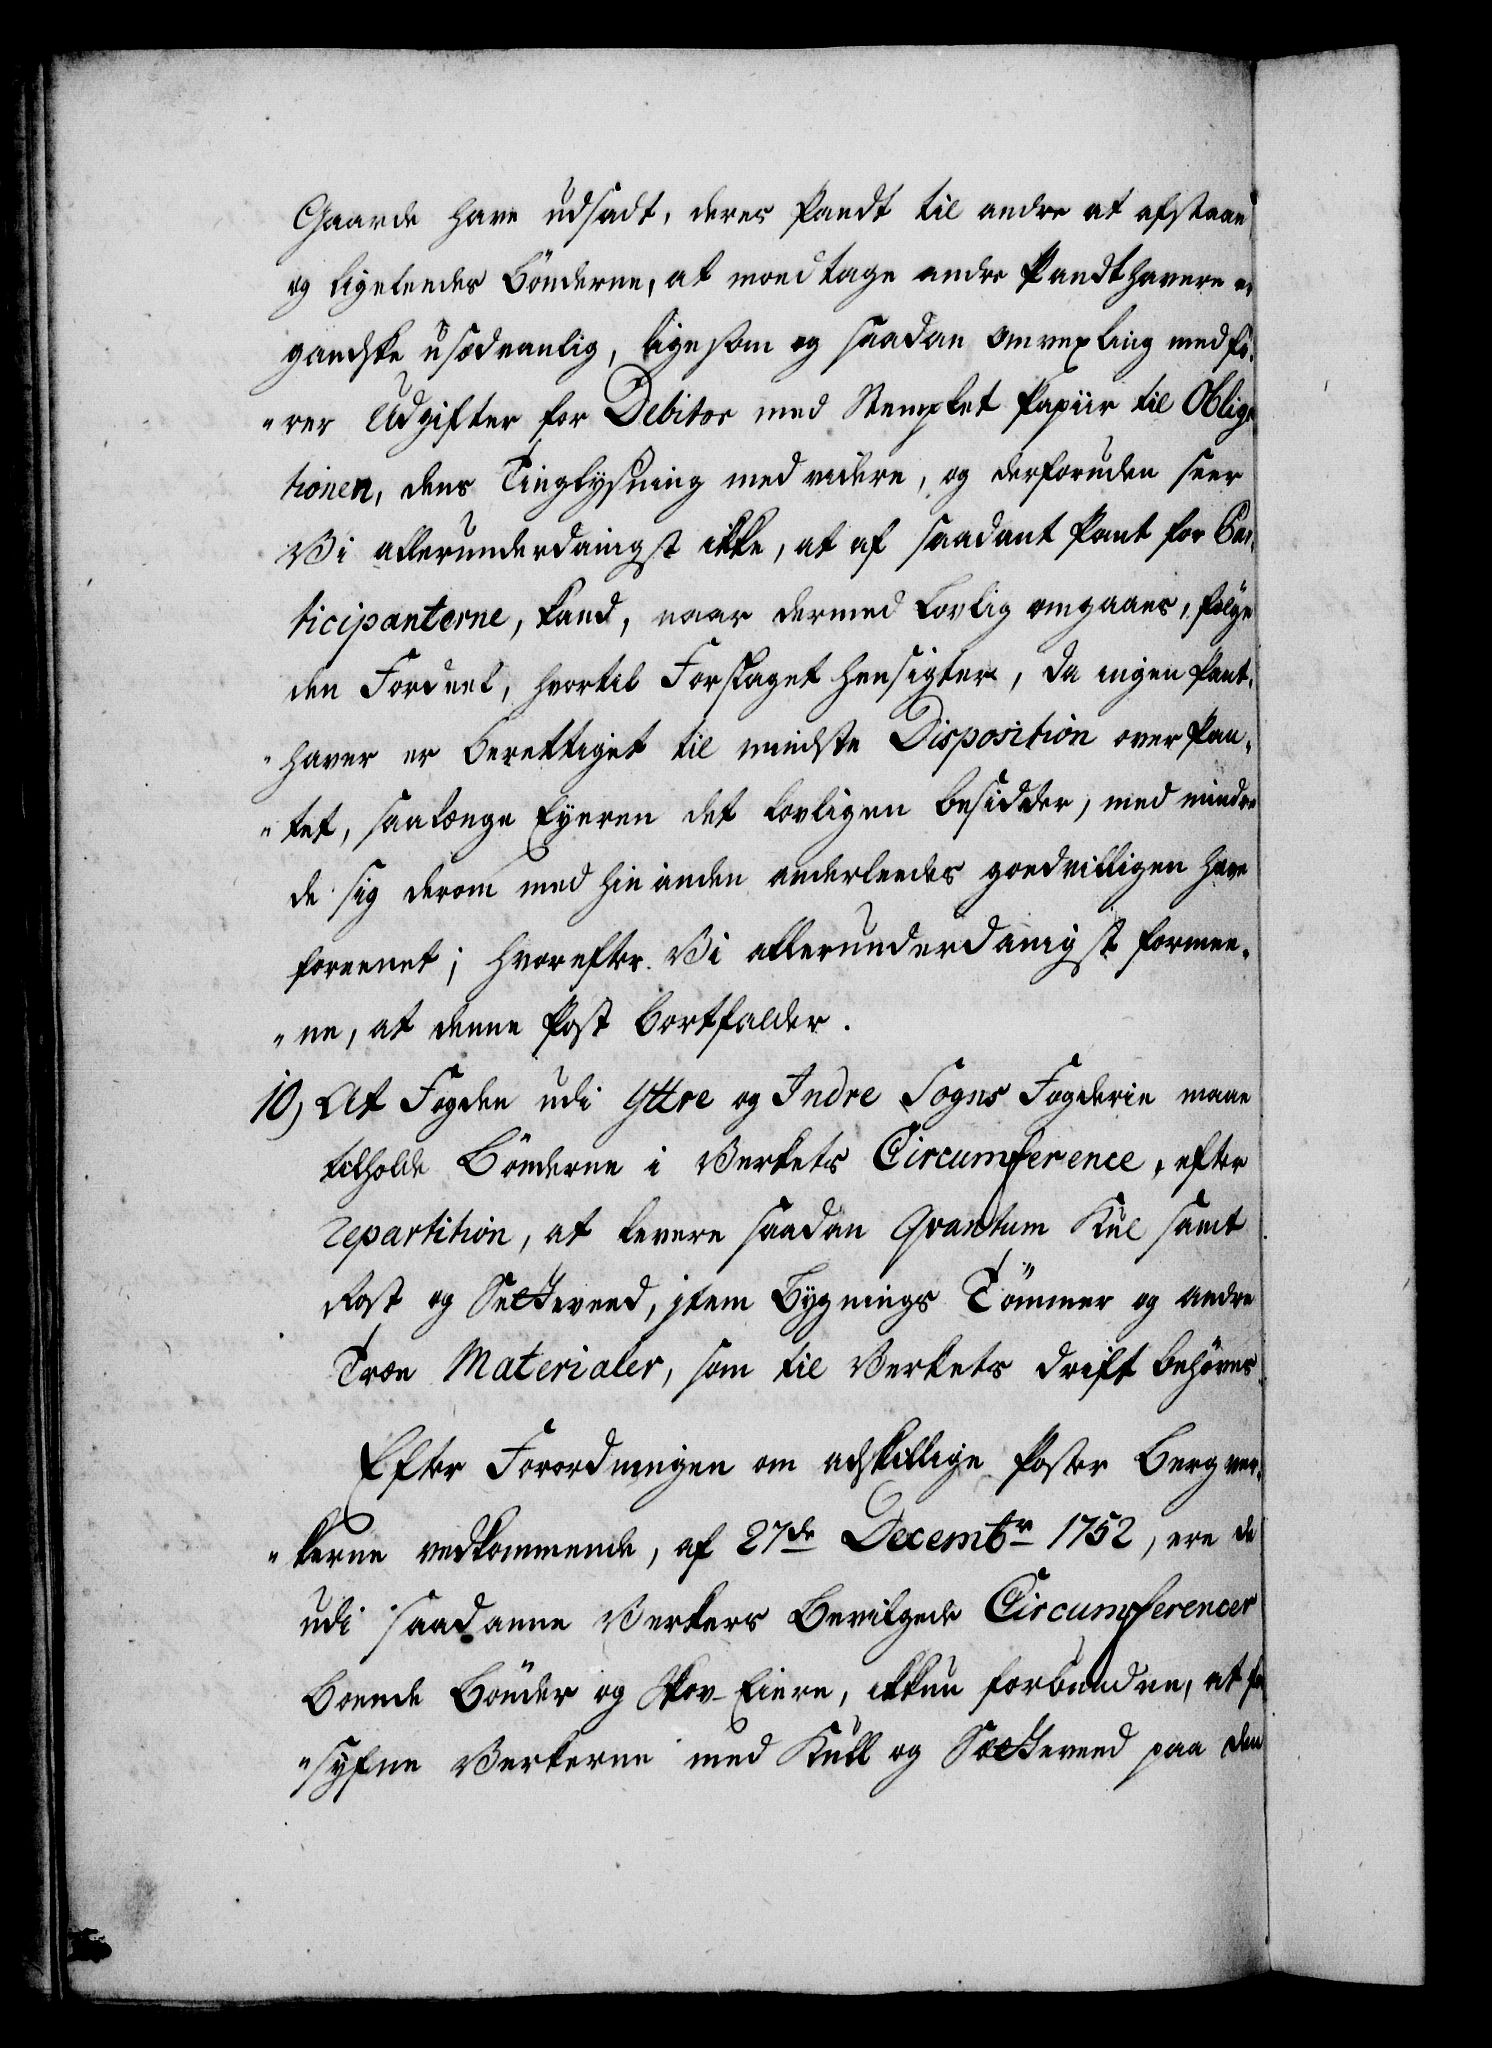 Gaarde have udsadt, deres Pandt til andre at afstaae
og ligeleedes Bönderne, at modtage andre Pandthavere er
gandske usædvanlig, ligesom og saadan omvexling medfö-
"rer Udgifter for Debitor med Stemplet Papiir til Obliga
tionen, dens Tinglysning med videre, og derforuden seer
Vi allerunderdanigst ikke, at af saadant Pant for Par-
ticipanterne, kand, naar dermed Lovlig omgaaes, fölge
den Fordeel, hvortil Forslaget hensigter, da ingen Pant-
"haver er berettiget til mindste Disposition over Pan-
"tet, saalænge Eyeren det lovligen besidder, med mindre
de sig derom med hinanden anderleedes goedvilligen have
foreenet; hvorefter Vi allerunderdanigst formee-
"ne, at denne Post bortfalder.
10) At Fogden udi Yttre og Indre Sogns Fogderie maae
tilholde Bönderne i Verkets Circumference, efter
repartition, at levere saadan Qvantum Kul samt
Rost og Setteveed, item Bygnings Tömmer og andre
Træe Materialer, som til Verkets drift behöves.
Efter Forordningen om adskillige Poster Bergver-
"kerne vedkommende, af 27de Decembr 1752, ere de
udi saadanne Verkers Bevilgede Circumferencer
Boende Bönder og Skov-Eiere, ikkun forbundne, at for
"syne Verkerne med Kull og Sætteveed paa den